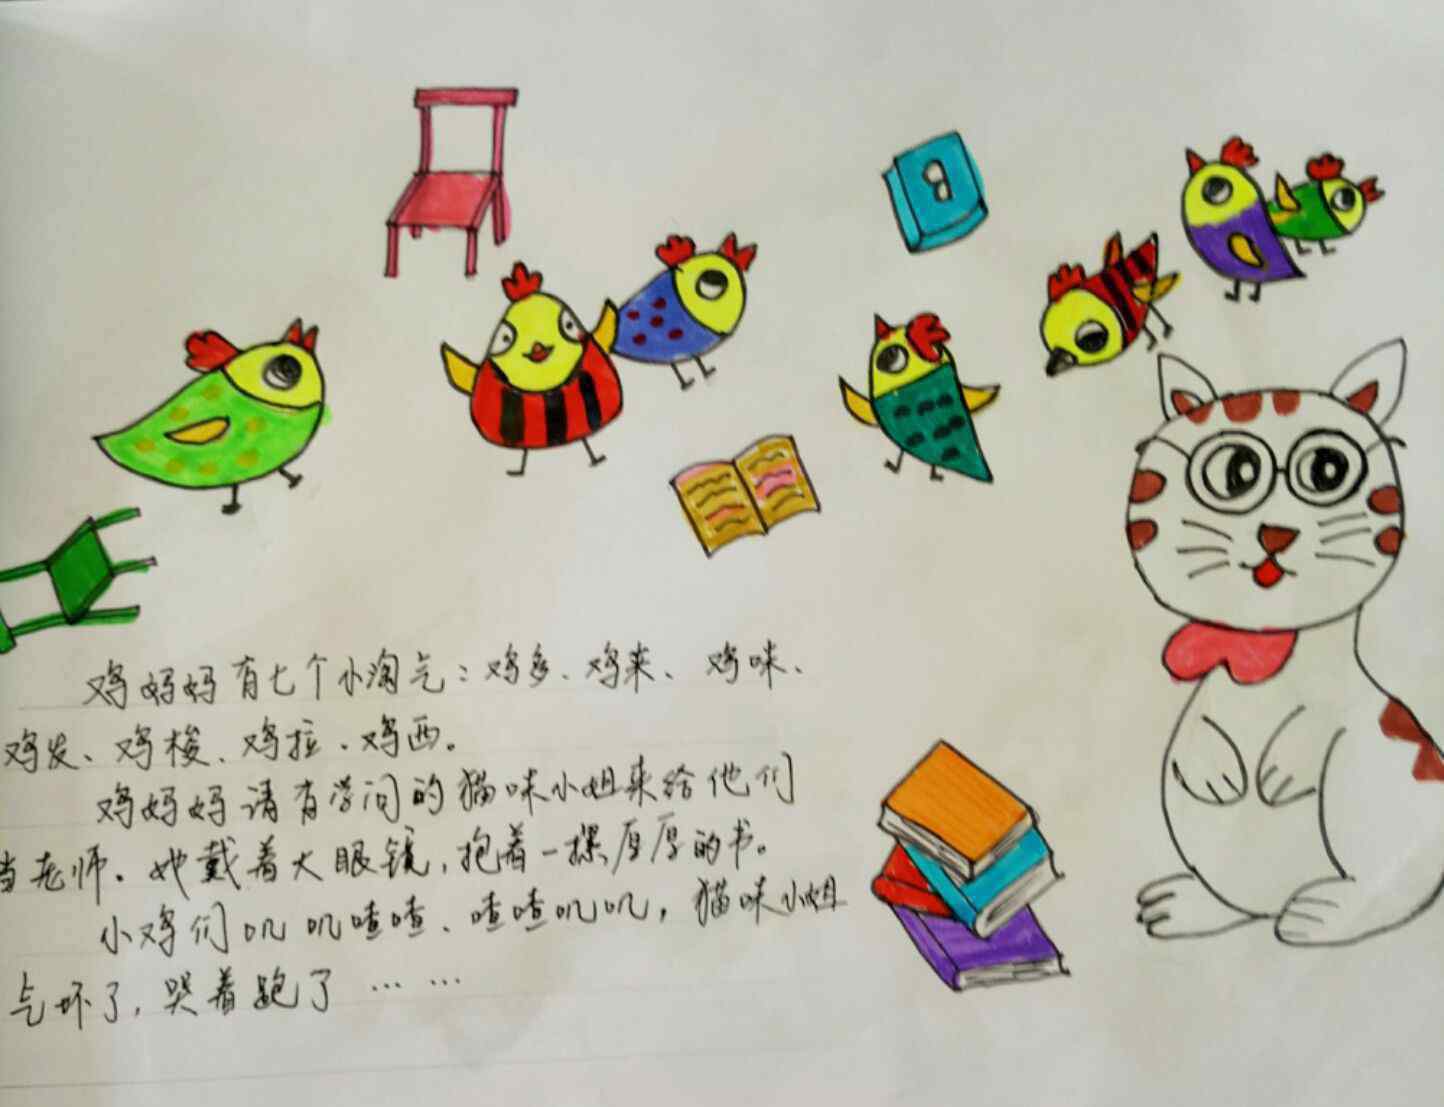 鸡妈妈有七个小淘气：鸡多、鸡来、鸡咪、
鸡发、鸡梭、鸡拉、鸡西。
鸡妈妈请有学问的猫咪小姐来给他们
当老师。她戴着大眼镜，抱着一摞厚厚的书。
小鸡们叽叽喳喳、喳喳叽叽，猫咪小姐
气坏了，哭着跑了……